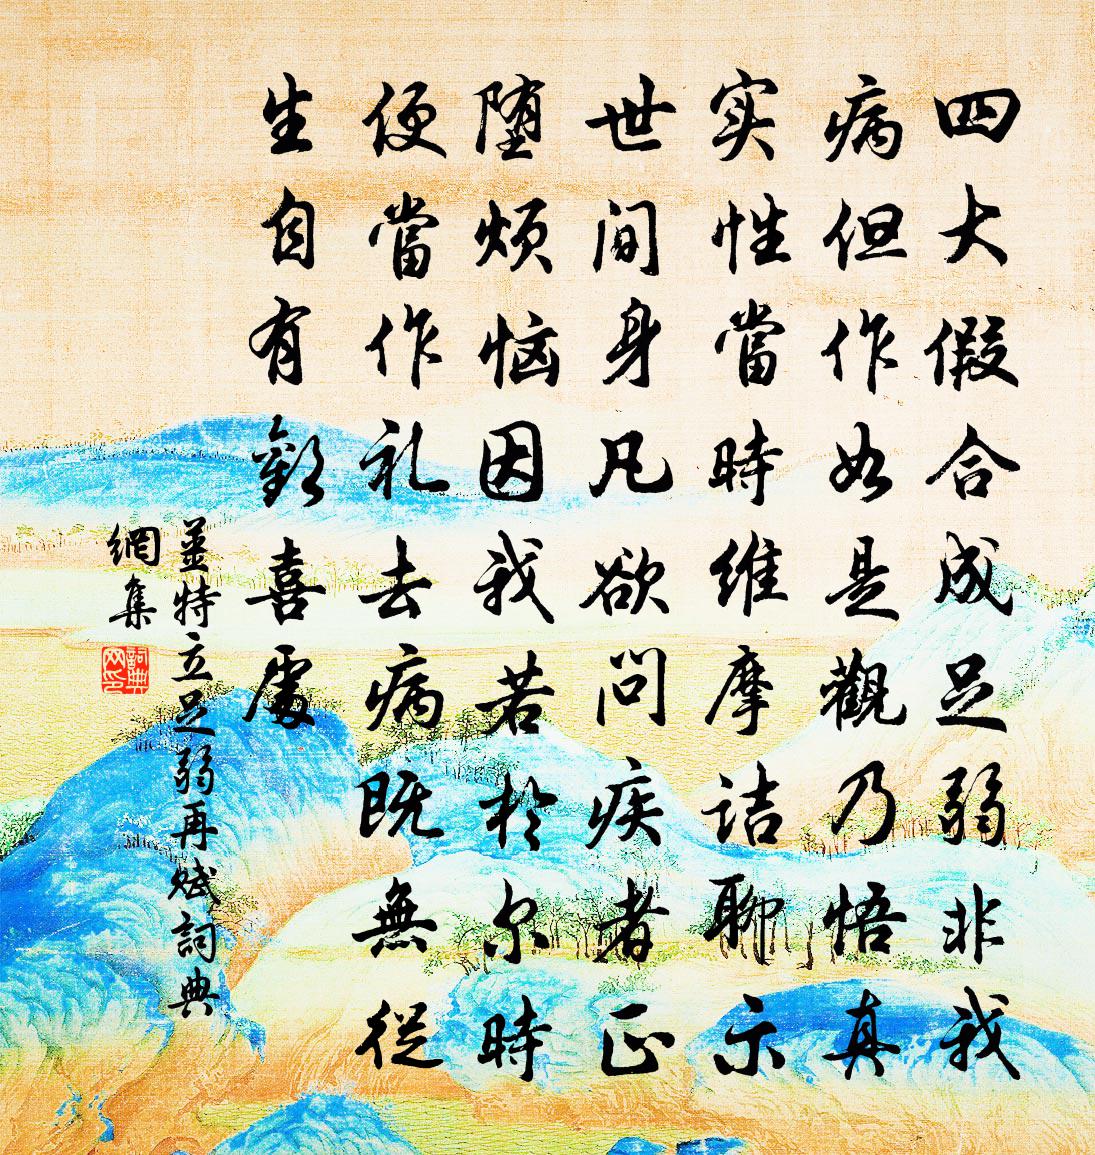 四大假合成足弱非我
病但作如是觀乃悟真
实性當時維摩诘聊示
世间身凡欲问疾者正
堕烦恼因我若於尔時
便當作礼去病既無從
生自有歡喜處
姜特立足弱再赋詞典
網集
詞典网印